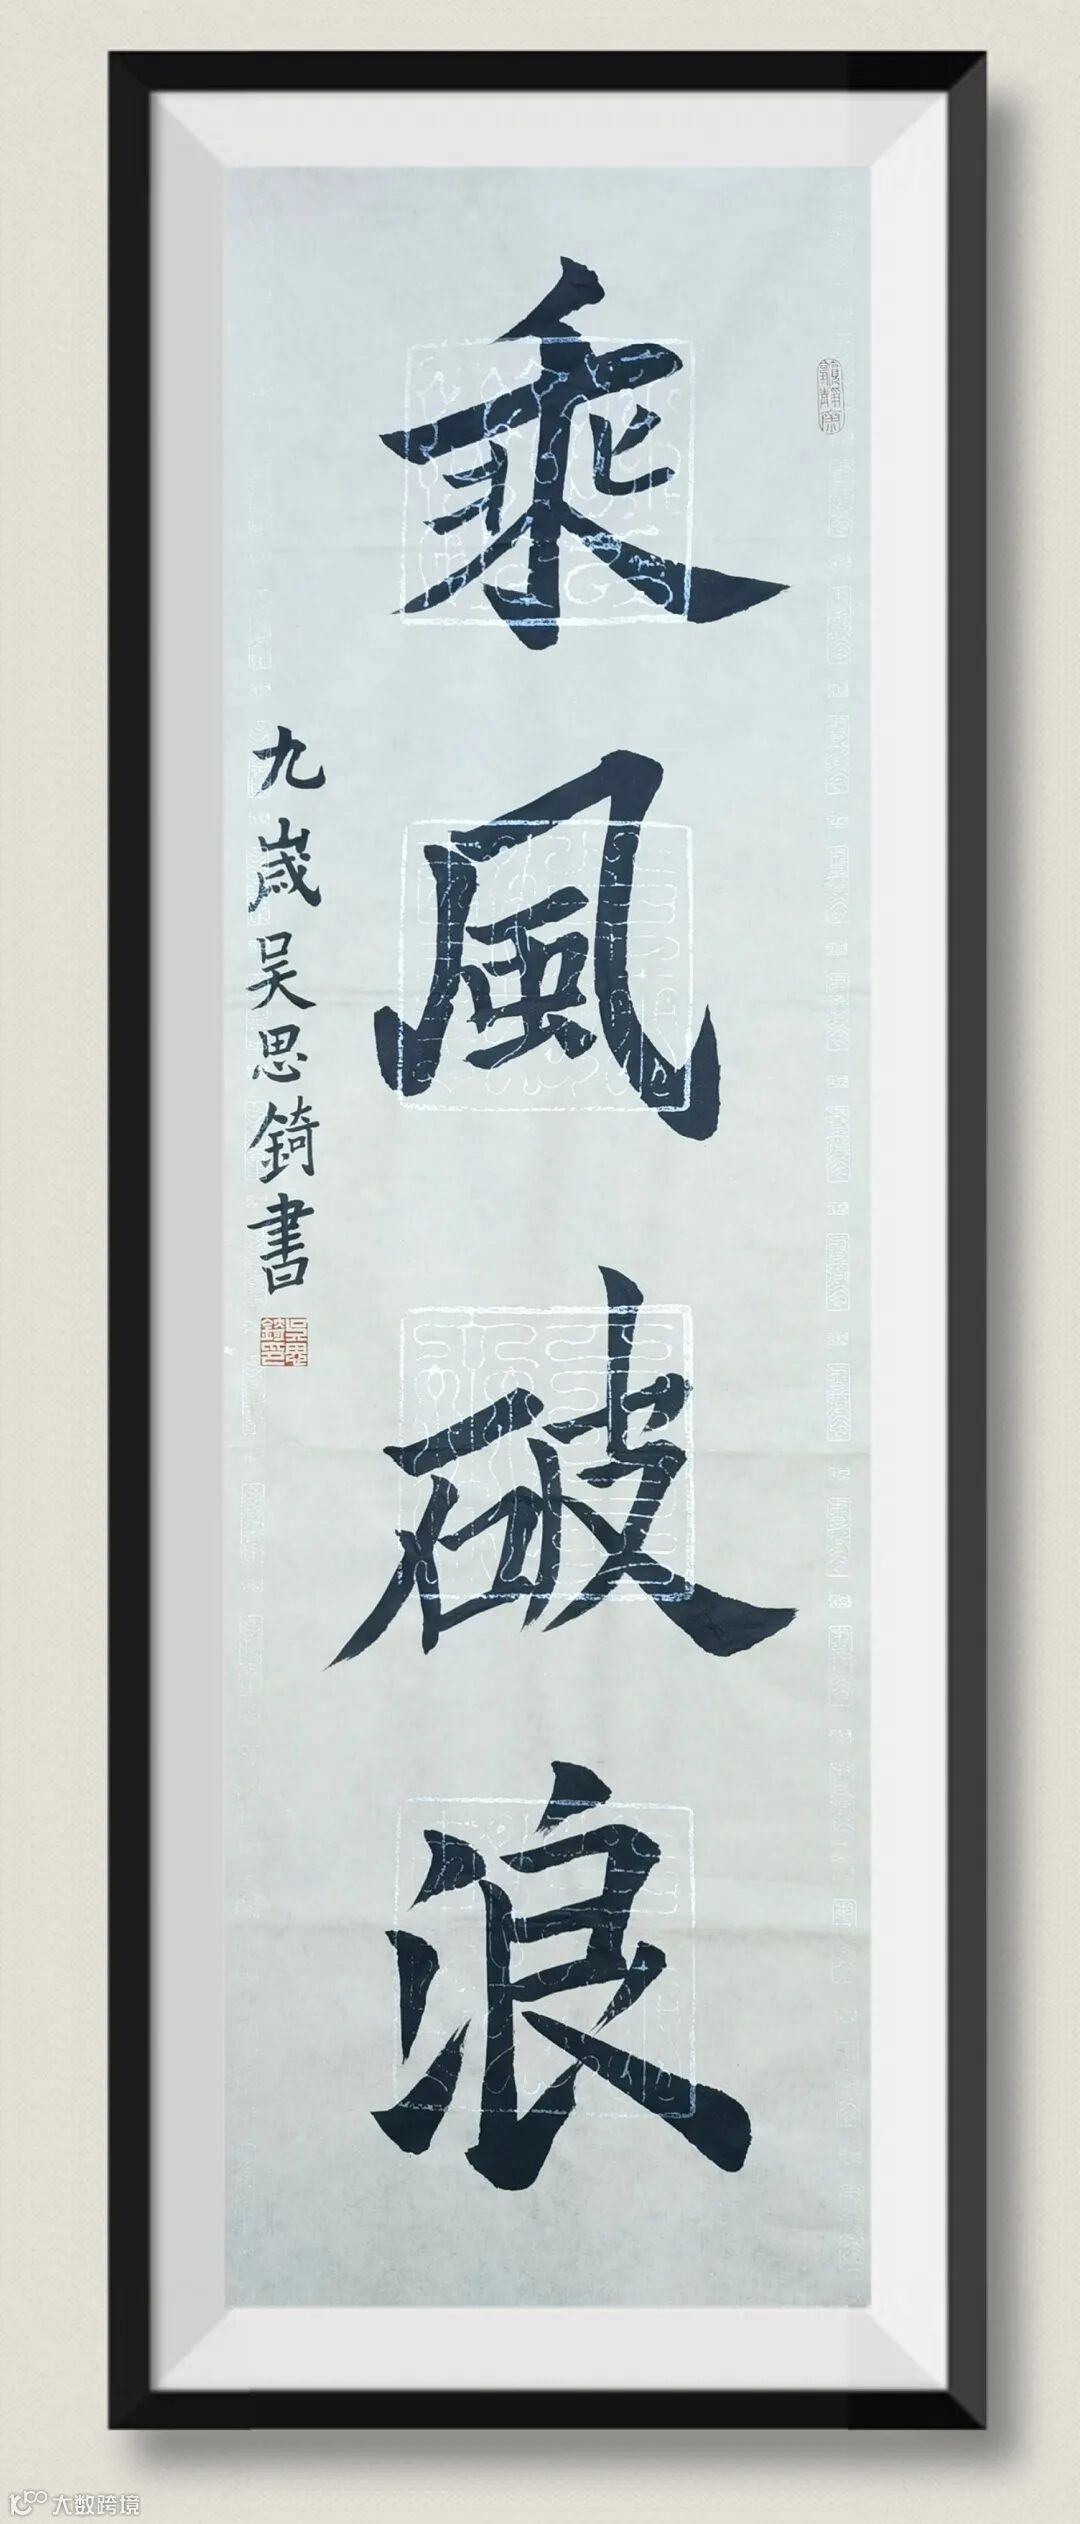 乘風破浪
九歲吴思錡書
吴思錡印
大数跨境